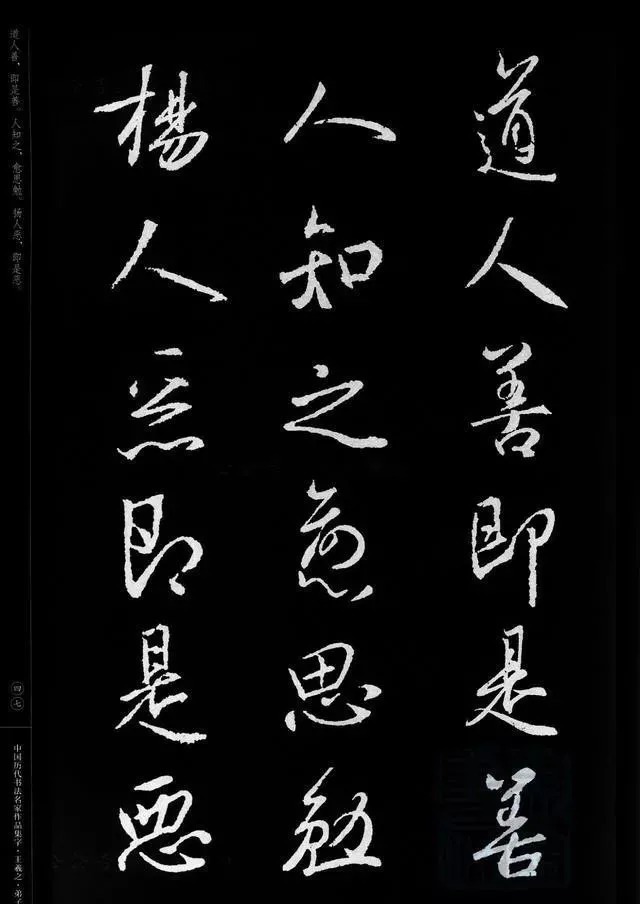 道人善即是善
人知之愈思勉
楊人惡即是惡
道人善，即是善。人知之，愈思勉。扬人恶，即是恶。
四七
中国历代书法名家作品集字·王羲之·弟子